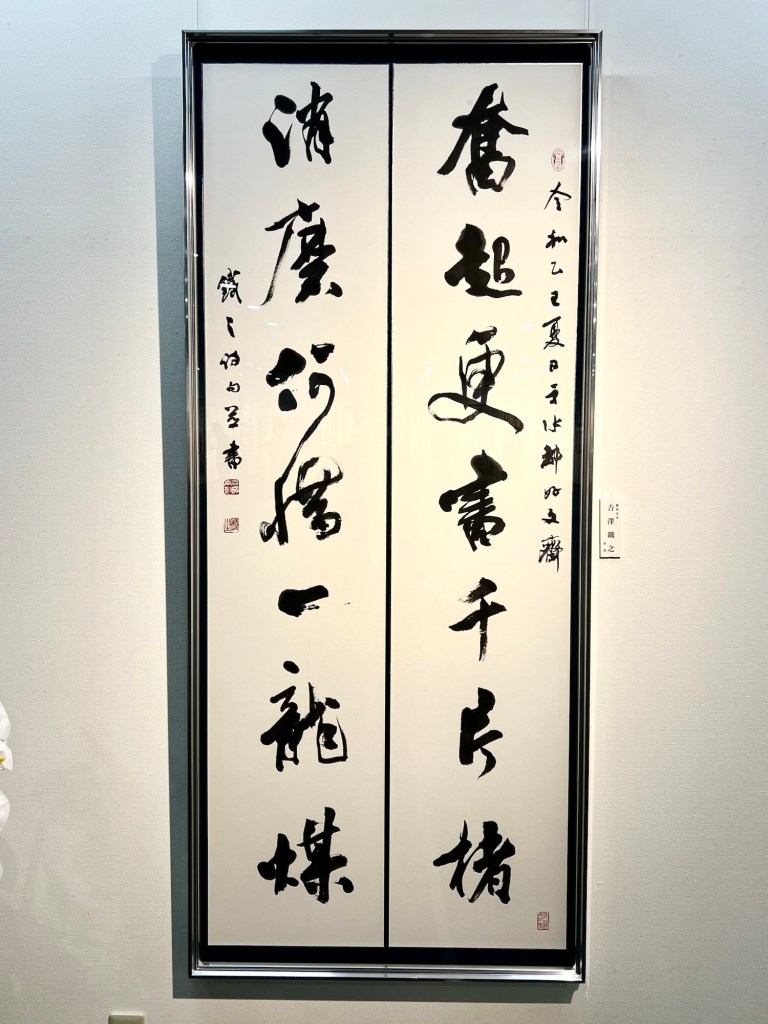 奮起更書千片楮
令和乙巳夏日于水都好文齋
消磨何惜一龍煤
鐵之詩句並書
吉澤鐵之